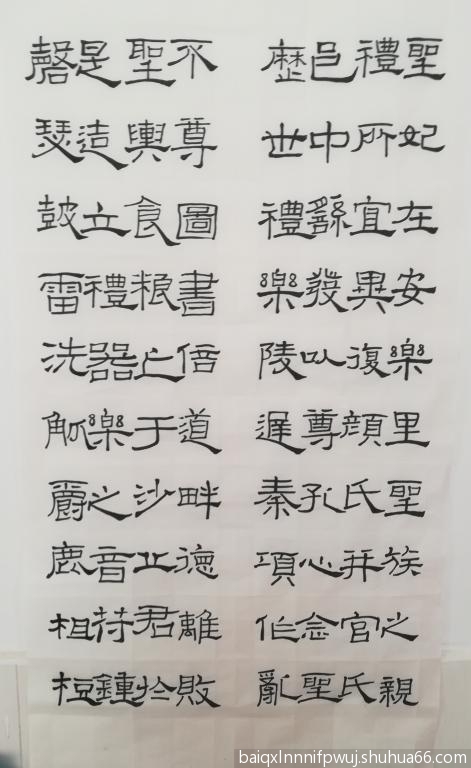 聖妃在安樂里聖族之親
禮所宜異復顔氏并官氏
邑中繇發以尊孔心念聖
歷世禮樂陵遲秦項作亂
不尊圖書倍道畔德離敗
聖輿食糧亡于沙丘君於
是造立禮器樂之音符鍾
磬瑟鼓雷洗觚爵鹿柤梪
baiqxlnnnifpwuj.shuhua66.com